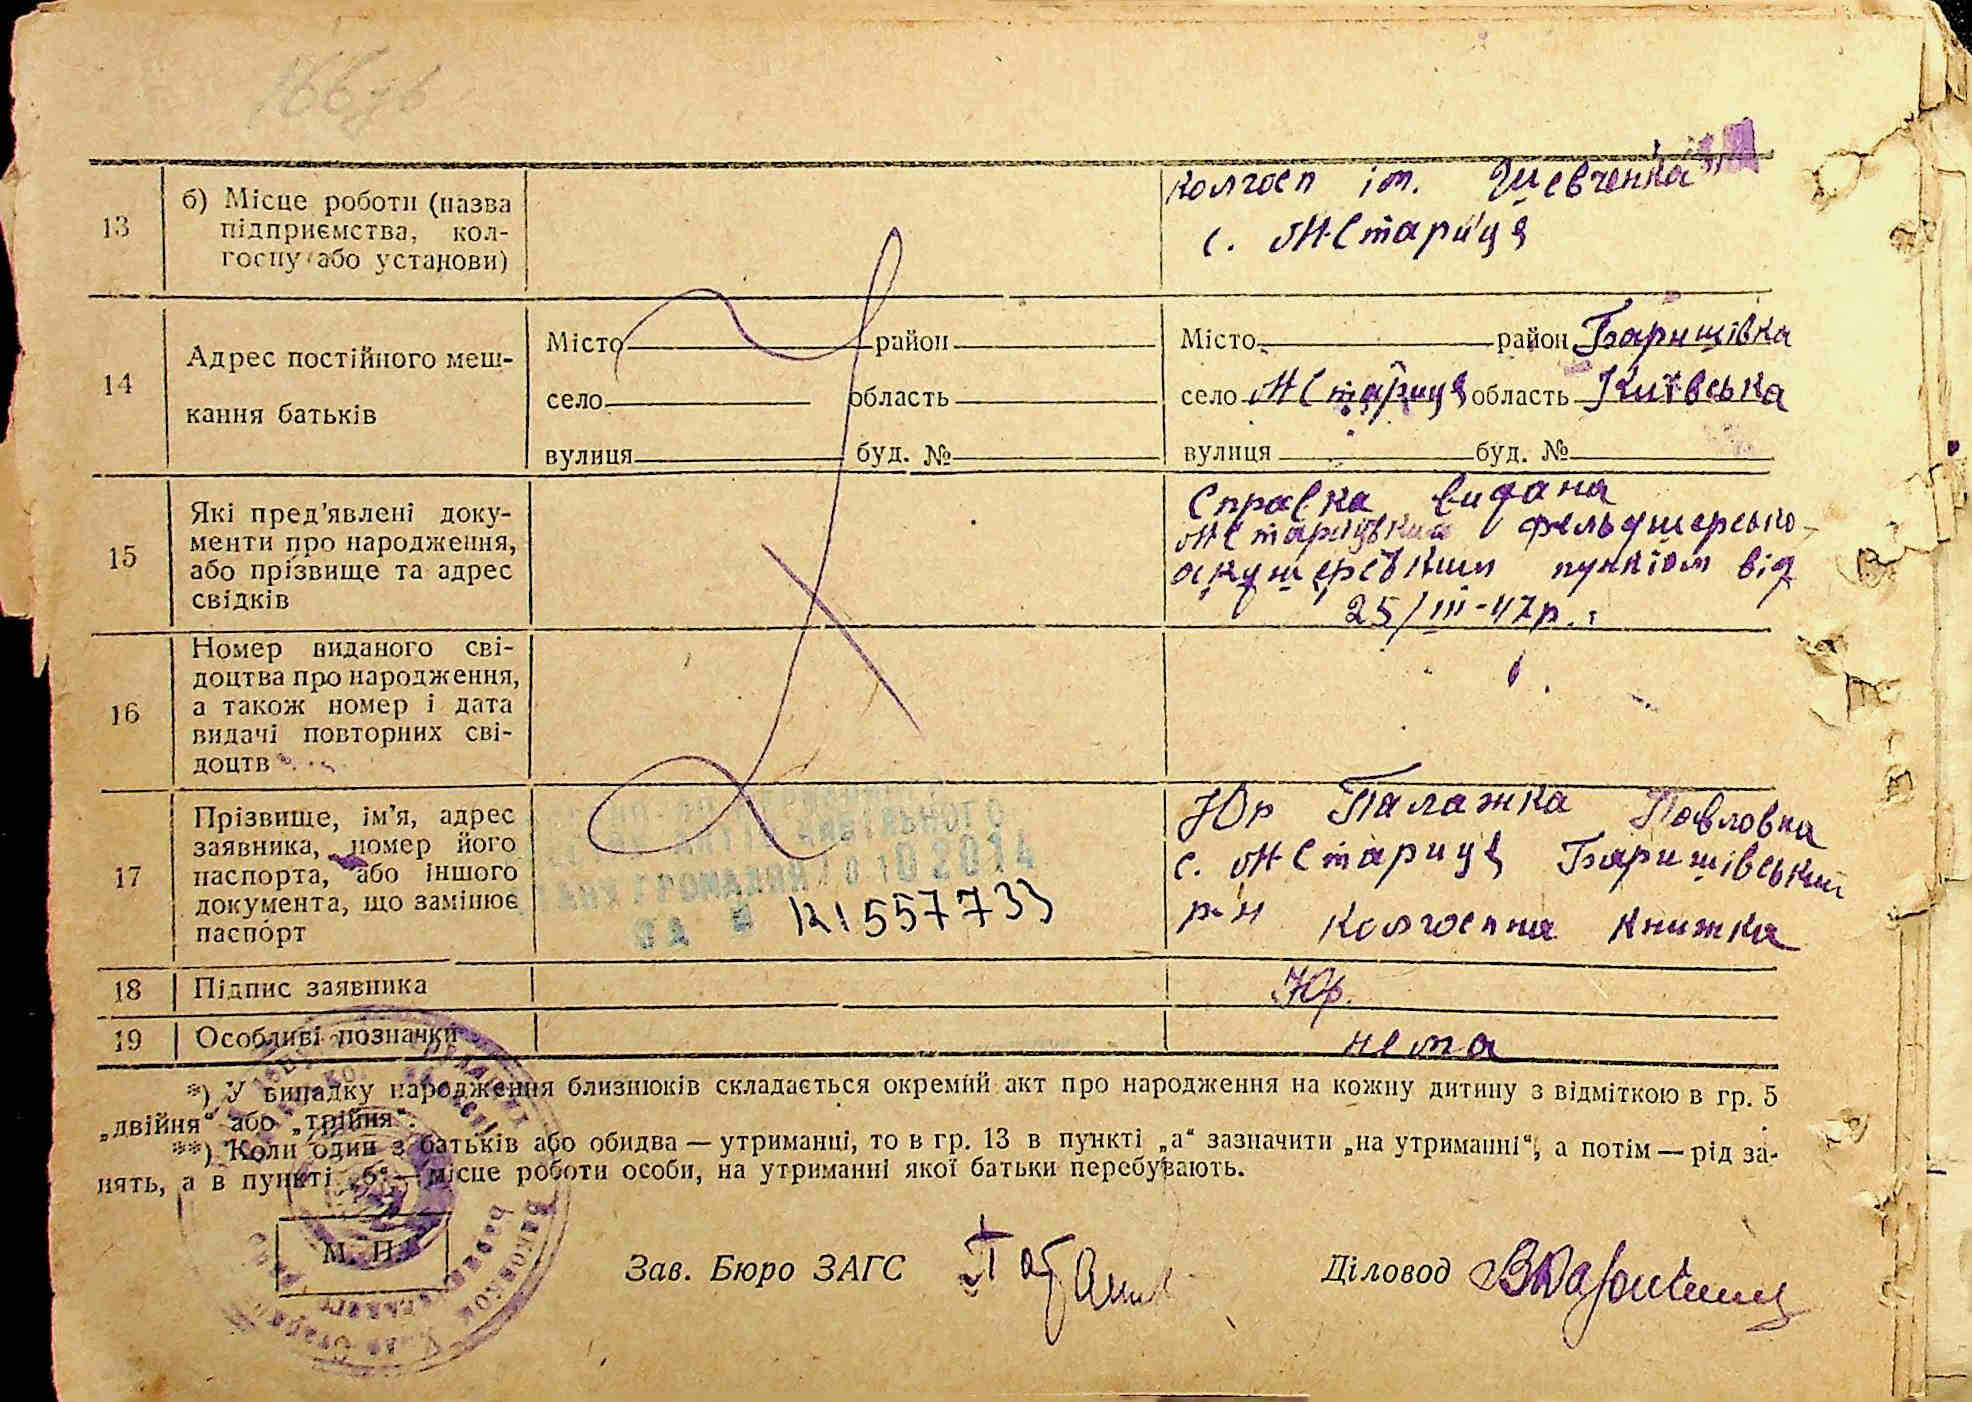 166зв
13
б) Місце роботи (назва
підприємства, кол-
госпу або установи)
колгосп ім. Шевченка
с. М-Стариця
14
Адрес постійного меш-
кання батьків
Місто район
село область
вулиця буд. №
Місто район Баришівка
село М Стариця область Київська
вулиця буд. №
15
Які пред'явлені доку-
менти про народження,
або прізвище та адрес
свідків
Справка видана
М Старицьким фельдшерсько-
акушерським пунктом від
25/III-47р.
16
Номер виданого сві-
доцтва про народження,
а також номер і дата
видачі повторних сві-
доцтв
17
Прізвище, ім'я, адрес
заявника, номер його
паспорта, або іншого
документа, що замінює
паспорт
АКТІВ ЦИВІЛЬНОГО
ГРОМАДЯН 10 2014
ЗА № 1557733
Юр Палажка Павловна
с. М-Стариця Баришівський
р-н Колгоспна книжка
18
Підпис заявника
Юр.
19
Особливі позначки
нема
*) У випадку народження близнюків складається окремий акт про народження на кожну дитину з відміткою в гр. 5
„двійня“ або „трійня“.
**) Коли один з батьків або обидва — утриманці, то в гр. 13 в пункті „а“ зазначити „на утриманні“, а потім — рід за-
нять, а в пункті „б“ — місце роботи особи, на утриманні якої батьки перебувають.
М. П.
Зав. Бюро ЗАГС
Діловод